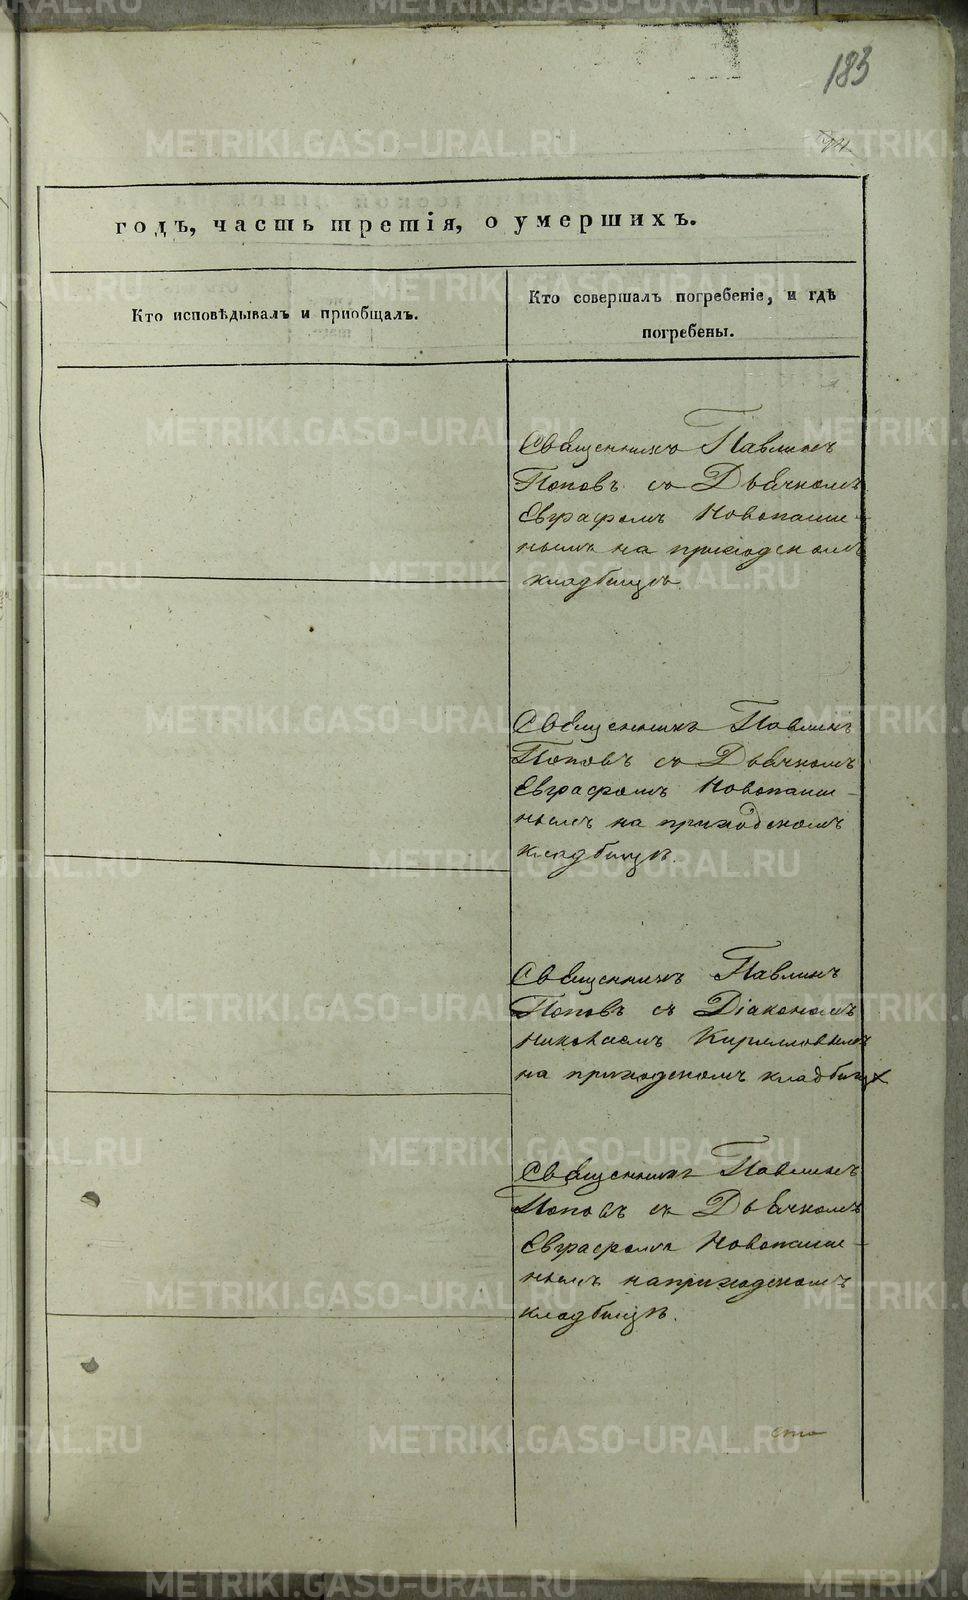 183
94
годъ, часть третія, о умершихъ.
Кто исповѣдывалъ и пріобщалъ.
Кто совершалъ погребеніе, и гдѣ
погребены.
Священникъ Павлинъ
Поповъ съ Дьячкомъ
Евграфомъ Новопаши-
нымъ на приходскомъ
кладбищѣ.
Священникъ Павлинъ
Поповъ съ Дьячкомъ
Евграфомъ Новопаши-
нымъ на приходскомъ
кладбищѣ.
Священникъ Павлинъ
Поповъ съ Діакономъ
Николаемъ Кирилловымъ
на приходскомъ кладбищѣ
Священникъ Павлинъ
Поповъ съ Дьячкомъ
Евграфомъ Новопаши-
нымъ на приходскомъ
кладбищѣ.
METRIKI.GASO-URAL.RU